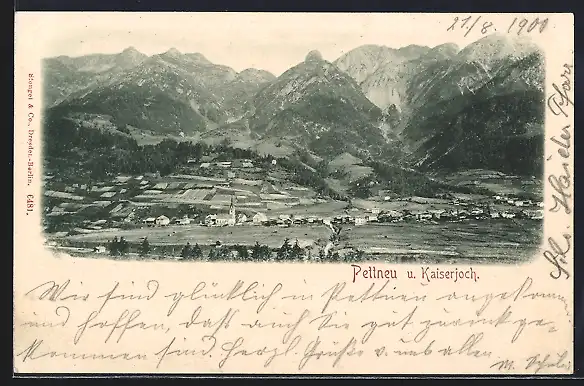 21/8. 1900
Stengel & Co., Dresden-Berlin. 6481.
Pettneu u. Kaiserjoch.
Wir sind glücklich in Pettneu angekommen
und hoffen, daß auch Sie gut zurück ge-
kommen sind. Herzl. Grüße v. uns allen